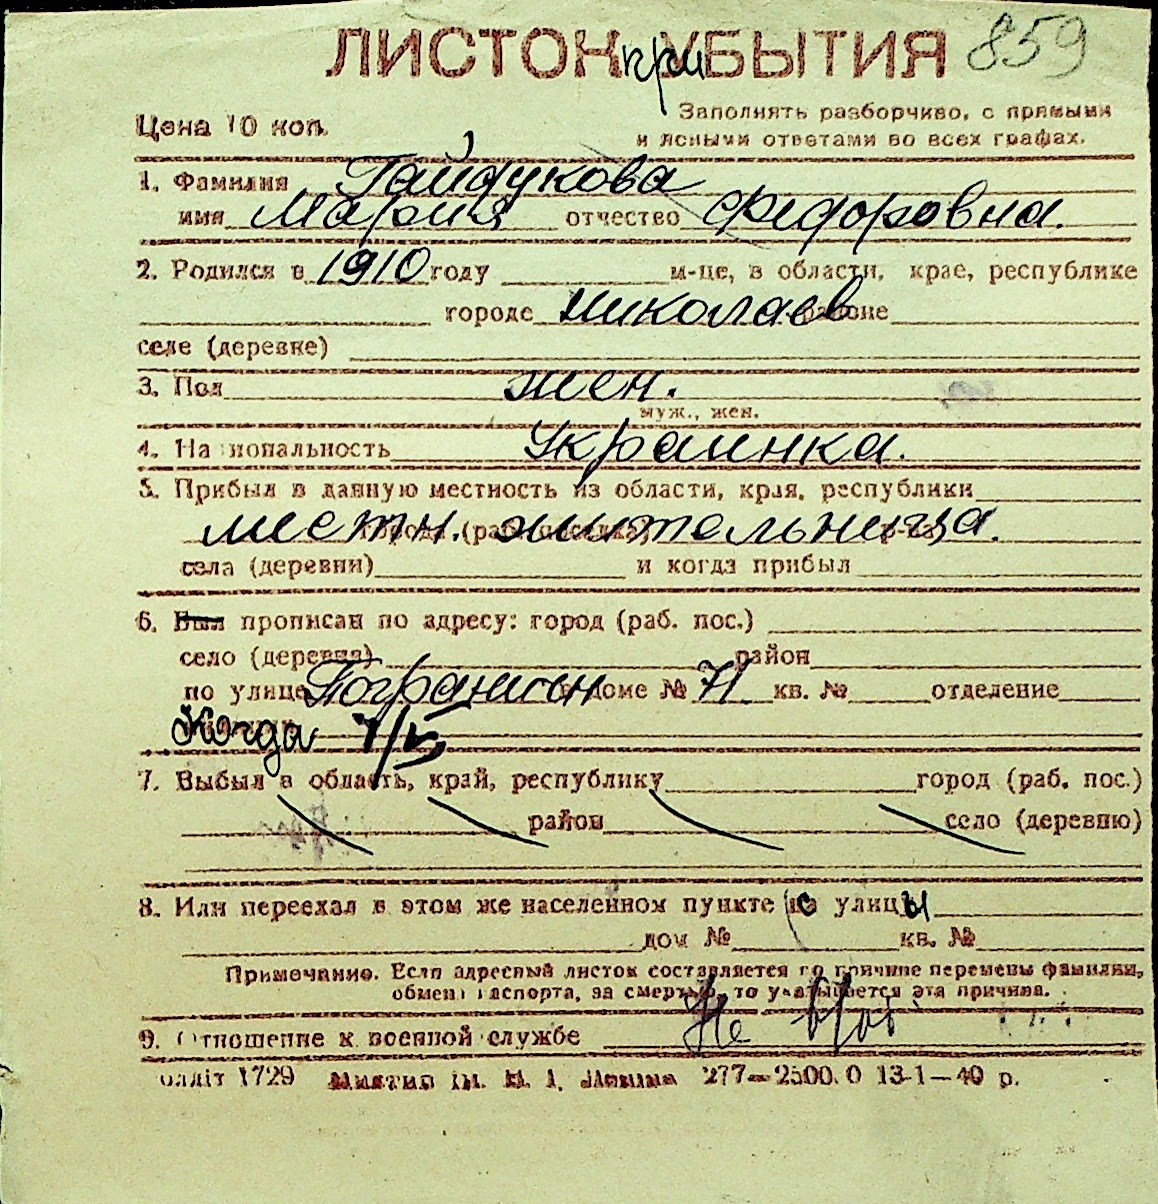 ЛИСТОК при УБЫТИЯ 859
Цена 10 коп.
Заполнять разборчиво, с прямыми
и ясными ответами во всех графах.
1. Фамилия Гайдукова
имя Мария отчество Федоровна.
2. Родился в 1910 году м-це, в области, крае, республике
городе Николаев районе
селе (деревне)
3. Пол жен.
муж., жен.
4. Национальность Украинка.
5. Прибыл в данную местность из области, края, республики
местн. жительница.
села (деревни) и когда прибыл
6. Был прописан по адресу: город (раб. пос.)
село (деревня) район
по улице Пограничн в доме № 71 кв. № отделение
Когда
7. Выбыл в область, край, республику город (раб. пос.)
район село (деревню)
8. Или переехал в этом же населенном пункте с улицы
дом № кв. №
Примечание. Если адресный листок составляется по причине перемены фамилии,
обмена паспорта, за смертью, то указывается эта причина.
9. Отношение к военной службе Не
1729 277—2500.0 13-1—40 р.